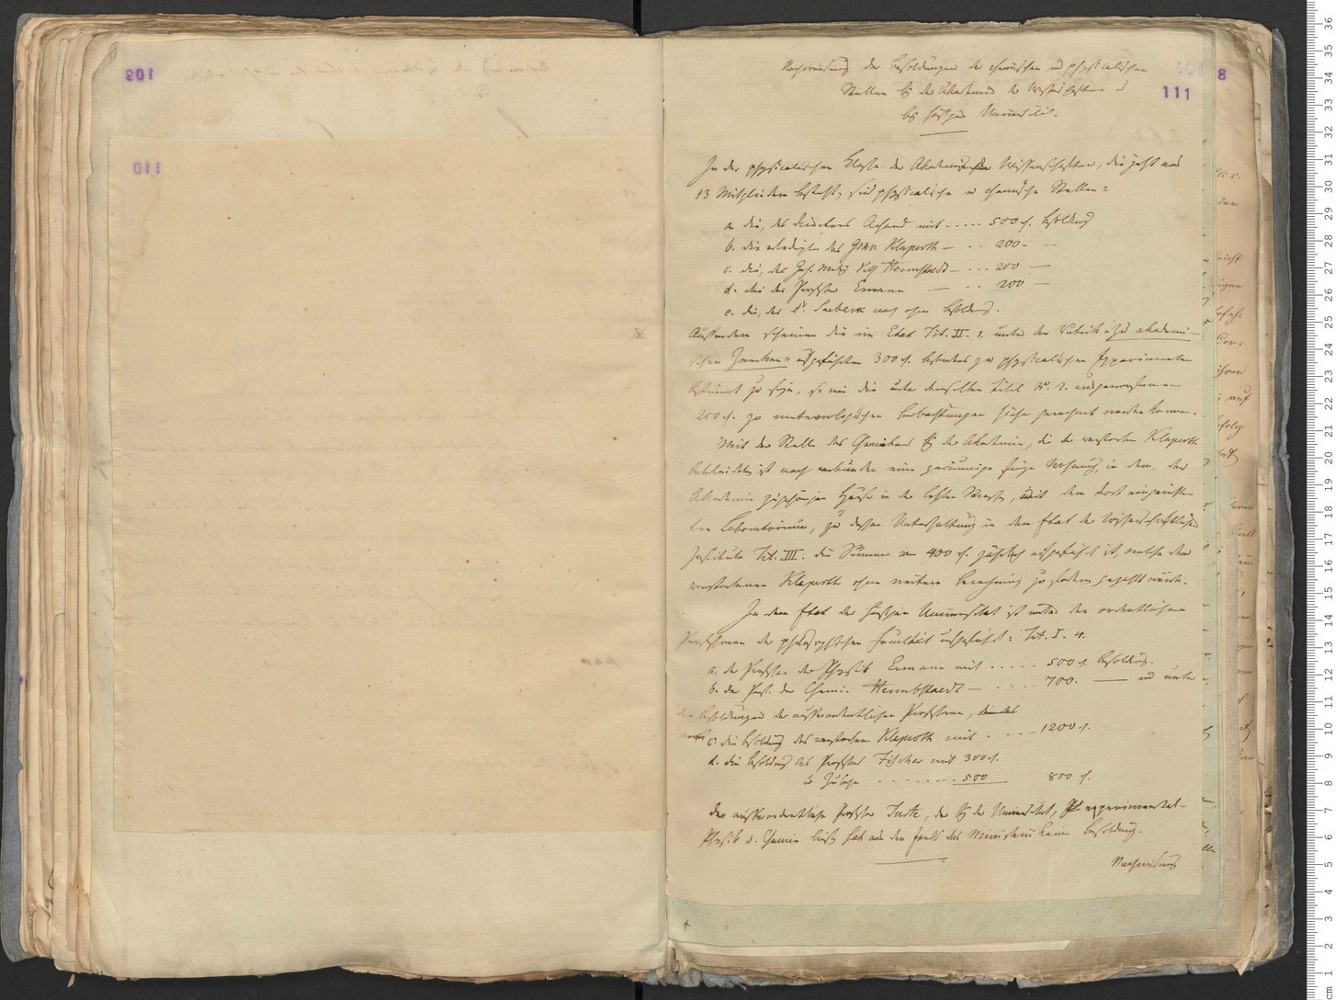 109
110
8
111
Nachweisung der Besoldungen der chemischen u physicalischen
Stellen bei der Akademie der Wissenschaften u
bei hiesiger Universität.
In der physicalischen Klasse der Akademie der Wissenschaften, die jetzt aus
13 Mitgliedern besteht, sind physicalische u chemische Stellen:
a. die, des Directors Achard mit ..... 500 rt. Besoldung
b. die erledigte des Klaproth — .. 200. —
c. die, des Geh. Hermbstaedt — ... 200 —
d. die des Professor Ermann — .. 200 —
e. die, des Dr. Seebeck noch ohne Besoldung.
Ausserdem scheinen die im Etat Tit. II. 1. unter der Rubrik "zu akademi-
schen Zwecken" aufgeführten 300 rt. besonders zu physicalischen Experimenten
bestimmt zu seyn, so wie die unter demselben Titel
200 rt. zu meteorologischen Beobachtungen hieher gerechnet werden können.
Mit der Stelle des Chemikers bei der Akademie, die der verstorbene Klaproth
bekleidete, ist noch verbunden eine geräumige freye Wohnung in dem, der
Akademie zugehörigen Hause in der letzten Strasse, mit dem dort eingerichte-
ten Laboratorium, zu dessen Unterhaltung in dem Etat der wissenschaftlichen
Institute Tit. III. die Summe von 400 rt. jährlich ausgeführt ist, welche dem
verstorbenen Klaproth ohne weitere Berechnung zu gezahlt wurde.
In dem Etat der hiesigen Universitaet ist unter den ordentlichen
Professoren der philosophischen Facultät aufgeführt: Tit. I. 4.
a. der Professor der Physik Ermann mit ..... 500 rt. Besoldung.
b. der Prof. der Chemie Hermbstaedt — .... 700. — und unter
den Besoldungen der ausserordentlichen Professoren,
c. die Besoldung des verstorbenen Klaproth mit ... 1200 rt.
d. die Besoldung des Professor Fischer mit 300 rt.
u Zulage ........ 500 800 rt.
Der ausserordentliche Professor Turte, der bei der Universitaet, experimental-
Physik u. Chemie liest hat aus den Fonds des Ministerii keine Besoldung.
Nachweisung